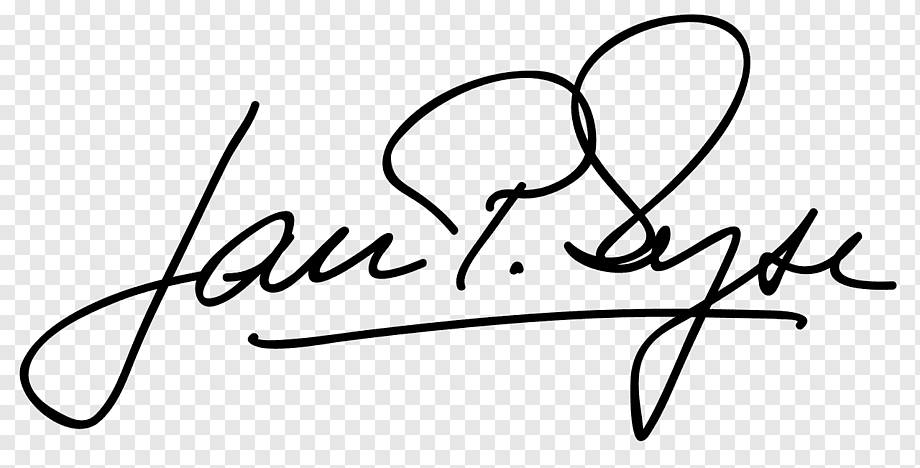 Jan P. Syse